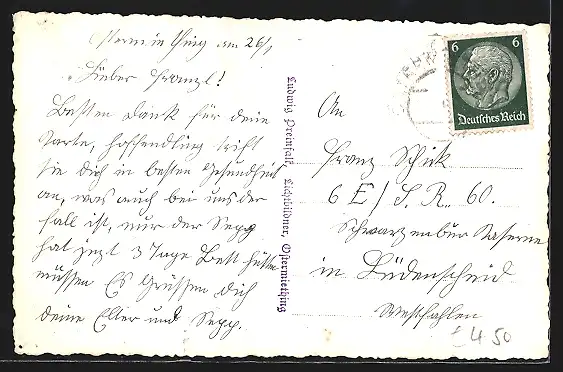 Ostermiething am 26/1
Lieber Franzl!
Besten Dank für deine
Karte, hoffendling trift
sie dich in besten Gesundheit
an, was auch bei uns der
Fall ist, nur der Sepp
hat jezt 3 Tage Bett hütten
müssen Es Grüssen dich
deine Elter und Sepp.
Ludwig Preinfalk, Lichtbildner, Ostermiething
6 6
Deutsches Reich
An
Franz Schick
6 E/I. R. 60.
Schwarzenbür Kaserne
in Lüdenscheid
Westfahlen
£4.50